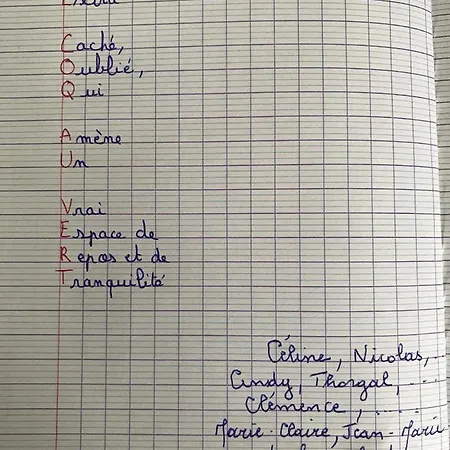 Caché,
Oublié,
Qui
Amène
Un
Vrai
Espace de
Repos et de
Tranquilité
Céline, Nicolas, ..
Cindy, Thorgal, ....
Clémence, .....
Marie-Claire, Jean-Marie